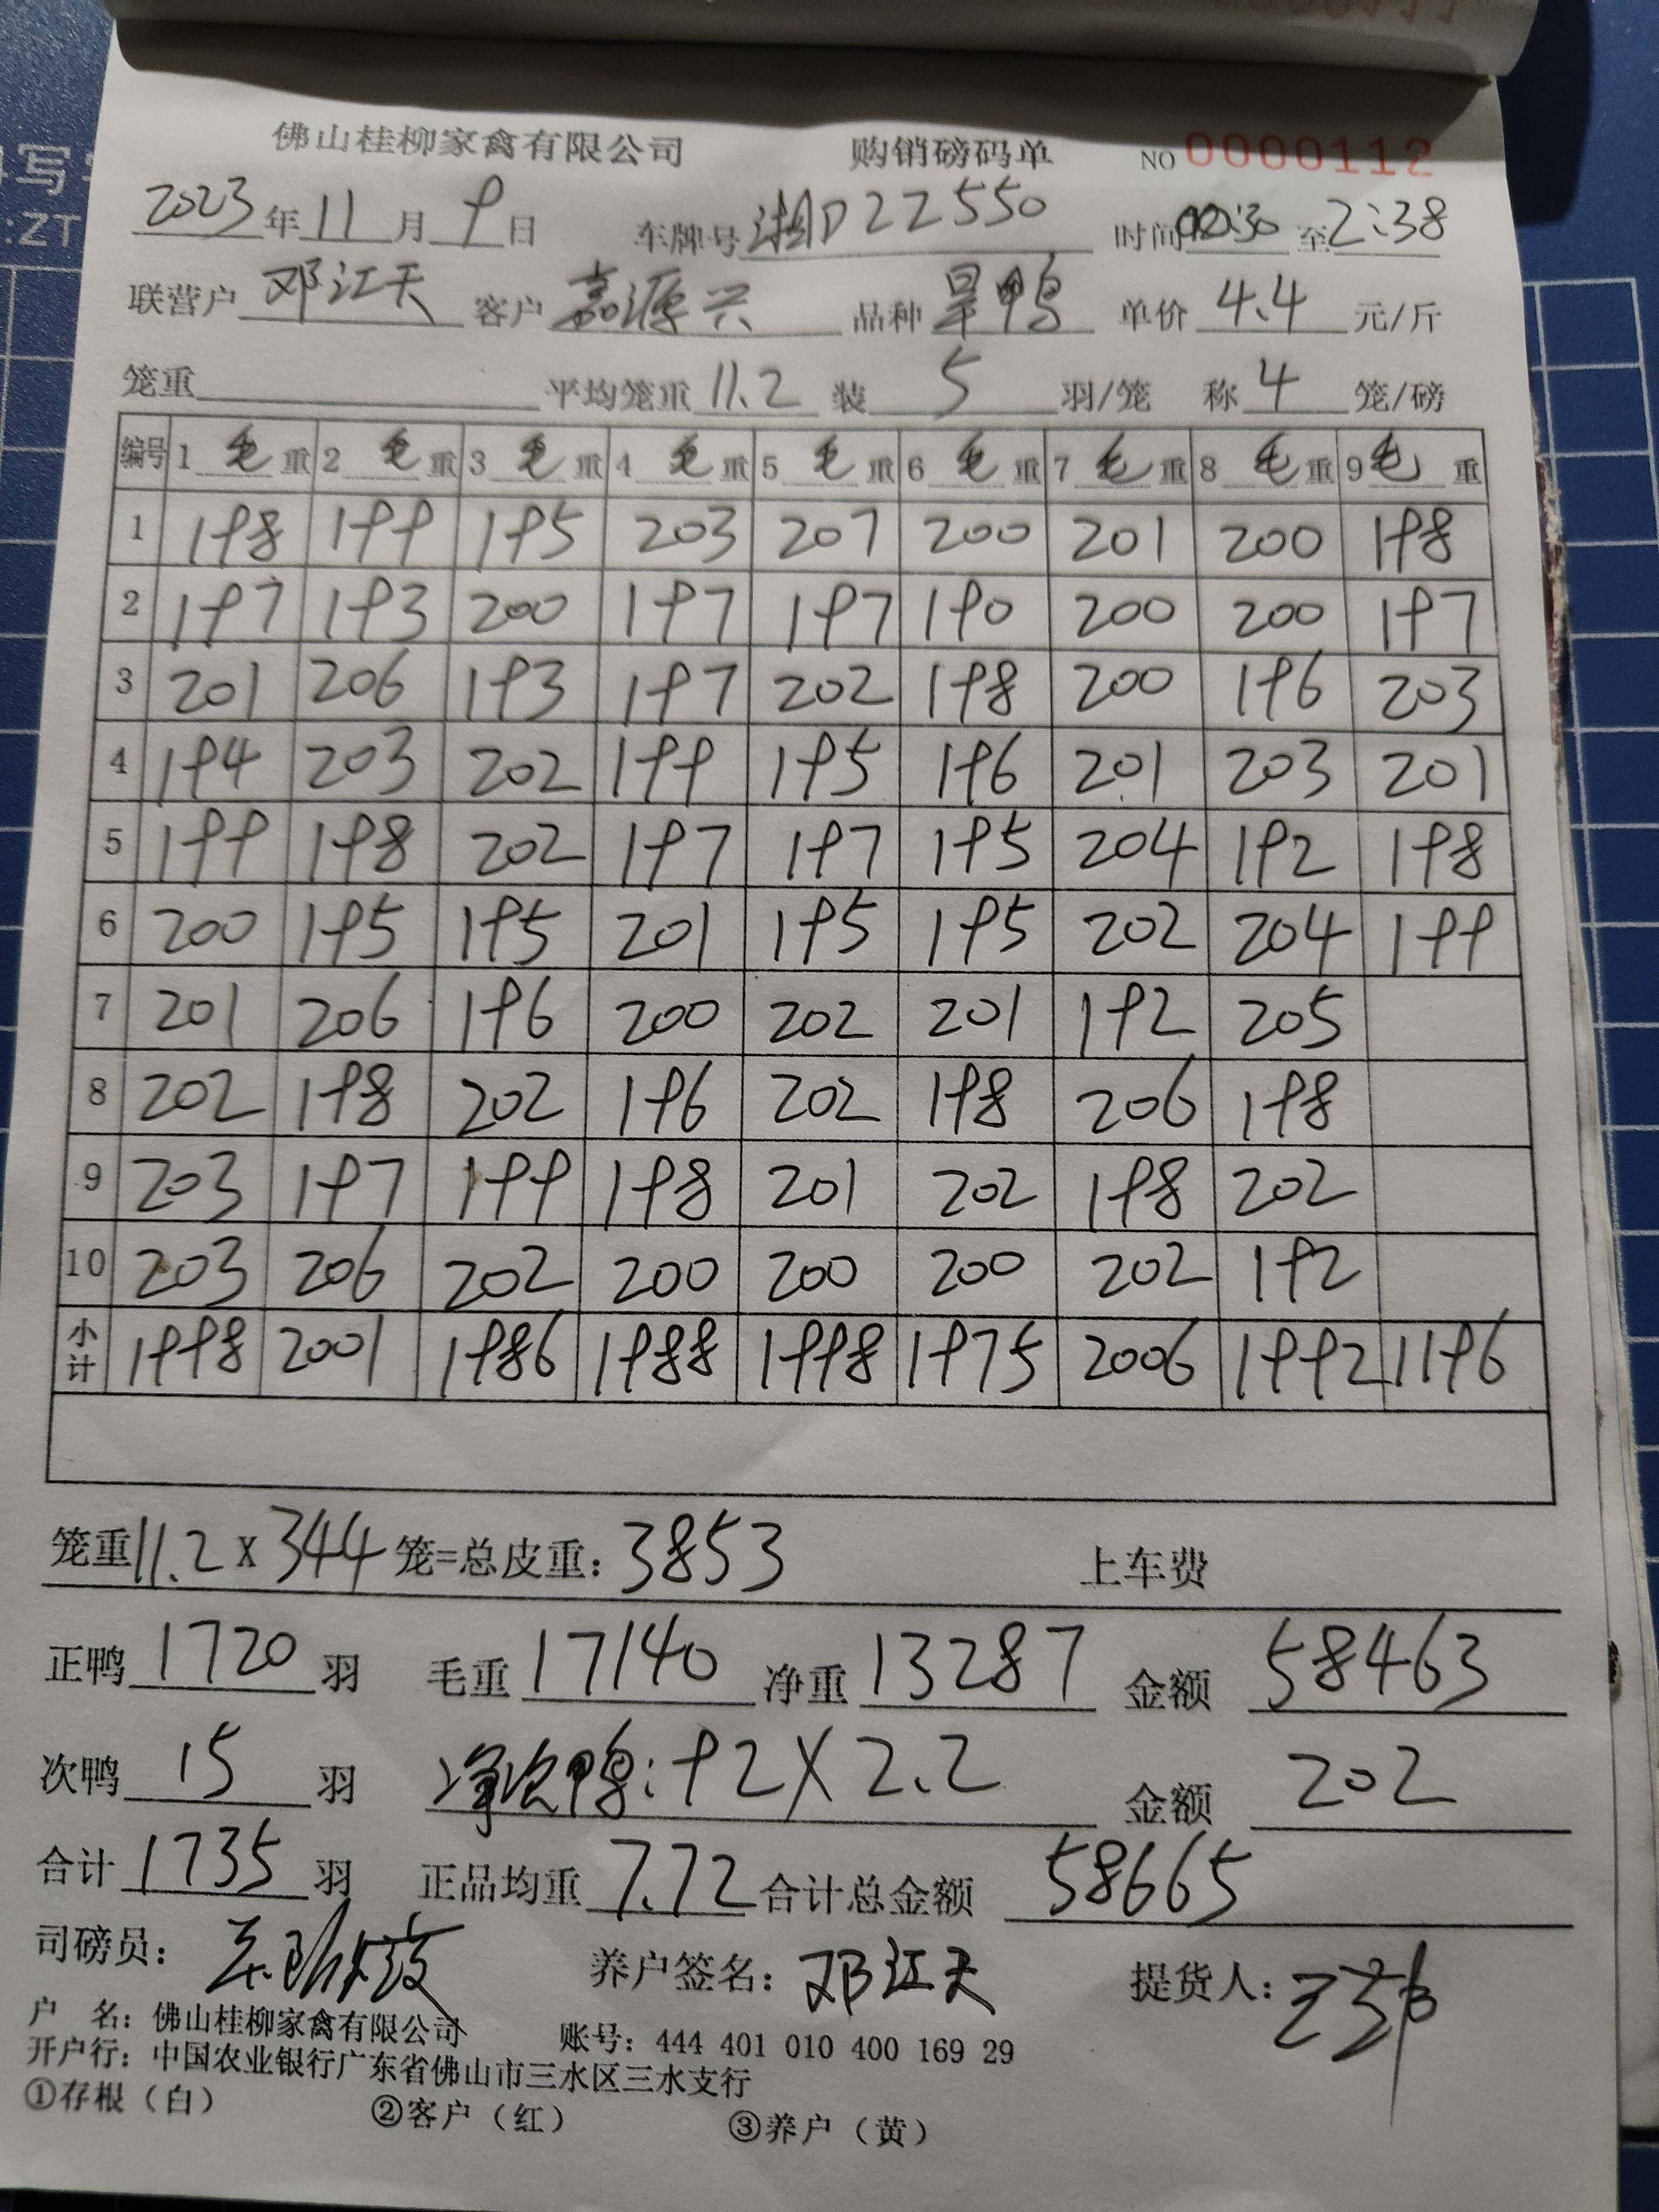 佛山桂柳家禽有限公司 购销磅码单 NO 0000112
2023年11月9日 车牌号 湘D22550 时间 至2:38
联营户 邓江天 客户 嘉源兴 品种 旱鸭 单价 4.4 元/斤
笼重 平均笼重 11.2 装 5 羽/笼 称 4 笼/磅
编号 1 毛 重 2 毛 重 3 毛 重 4 毛 重 5 毛 重 6 毛 重 7 毛 重 8 毛 重 9 毛 重
1 198 199 195 203 207 200 201 200 198
2 197 193 200 197 197 190 200 200 197
3 201 206 193 197 202 198 200 196 203
4 194 203 202 199 195 196 201 203 201
5 199 198 202 197 197 195 204 192 198
6 200 195 195 201 195 195 202 204 199
7 201 206 196 200 202 201 192 205
8 202 198 202 196 202 198 206 198
9 203 197 199 198 201 202 198 202
10 203 206 202 200 200 200 202 192
小计 1998 2001 1986 1988 1998 1975 2006 1992 1196
笼重11.2x344笼=总皮重：3853 上车费
正鸭 1720 羽 毛重 17140 净重 13287 金额 58463
次鸭 15 羽 净次鸭:92X2.2 金额 202
合计 1735 羽 正品均重 7.72 合计总金额 58665
司磅员： 养户签名：邓江天 提货人：
户 名：佛山桂柳家禽有限公司 账号：444 401 010 400 169 29
开户行：中国农业银行广东省佛山市三水区三水支行
①存根（白） ②客户（红） ③养户（黄）